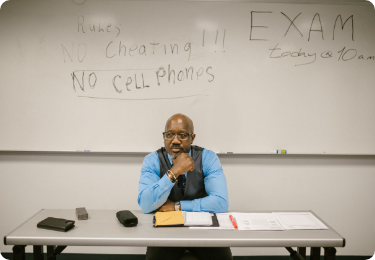 Rules
NO Cheating!!!
NO cell phones
EXAM
today @ 10am